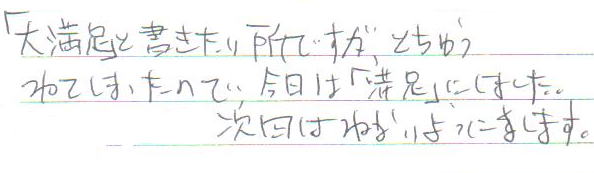 「大満足」と書きたい所ですが、とちゅう
ねてしまったので、今日は「満足」にしました。
次回はねないようにします。